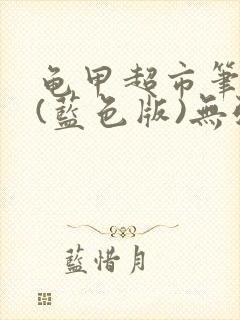 龟甲超市筆
(藍色版)無
藍惜月